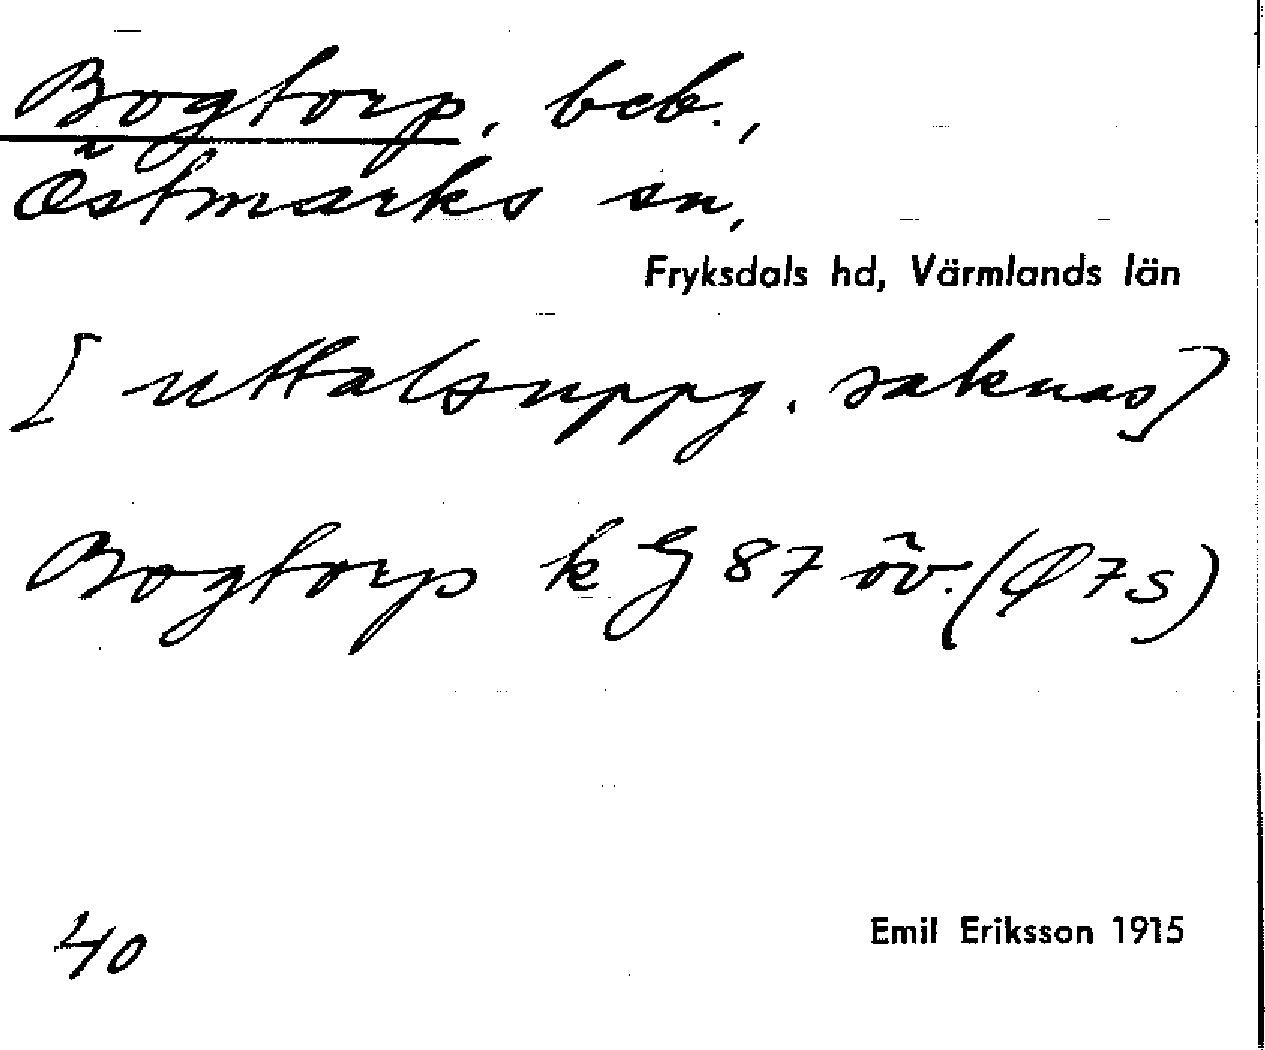 Bogtorp, beb.,
Östmarks sn,
Fryksdals hd, Värmlands län
[uttalsuppg. saknas]
Bogtorp k G 87 öv. (Ø 7 s)
40
Emil Eriksson 1915